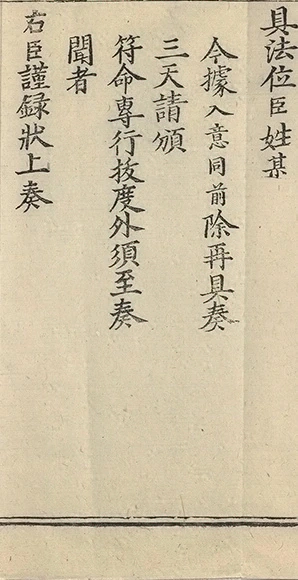 具法位臣姓某
今據入意同前除再具奏
三天請頒
符命專行拔度外須至奏
聞者
右臣謹録狀上奏